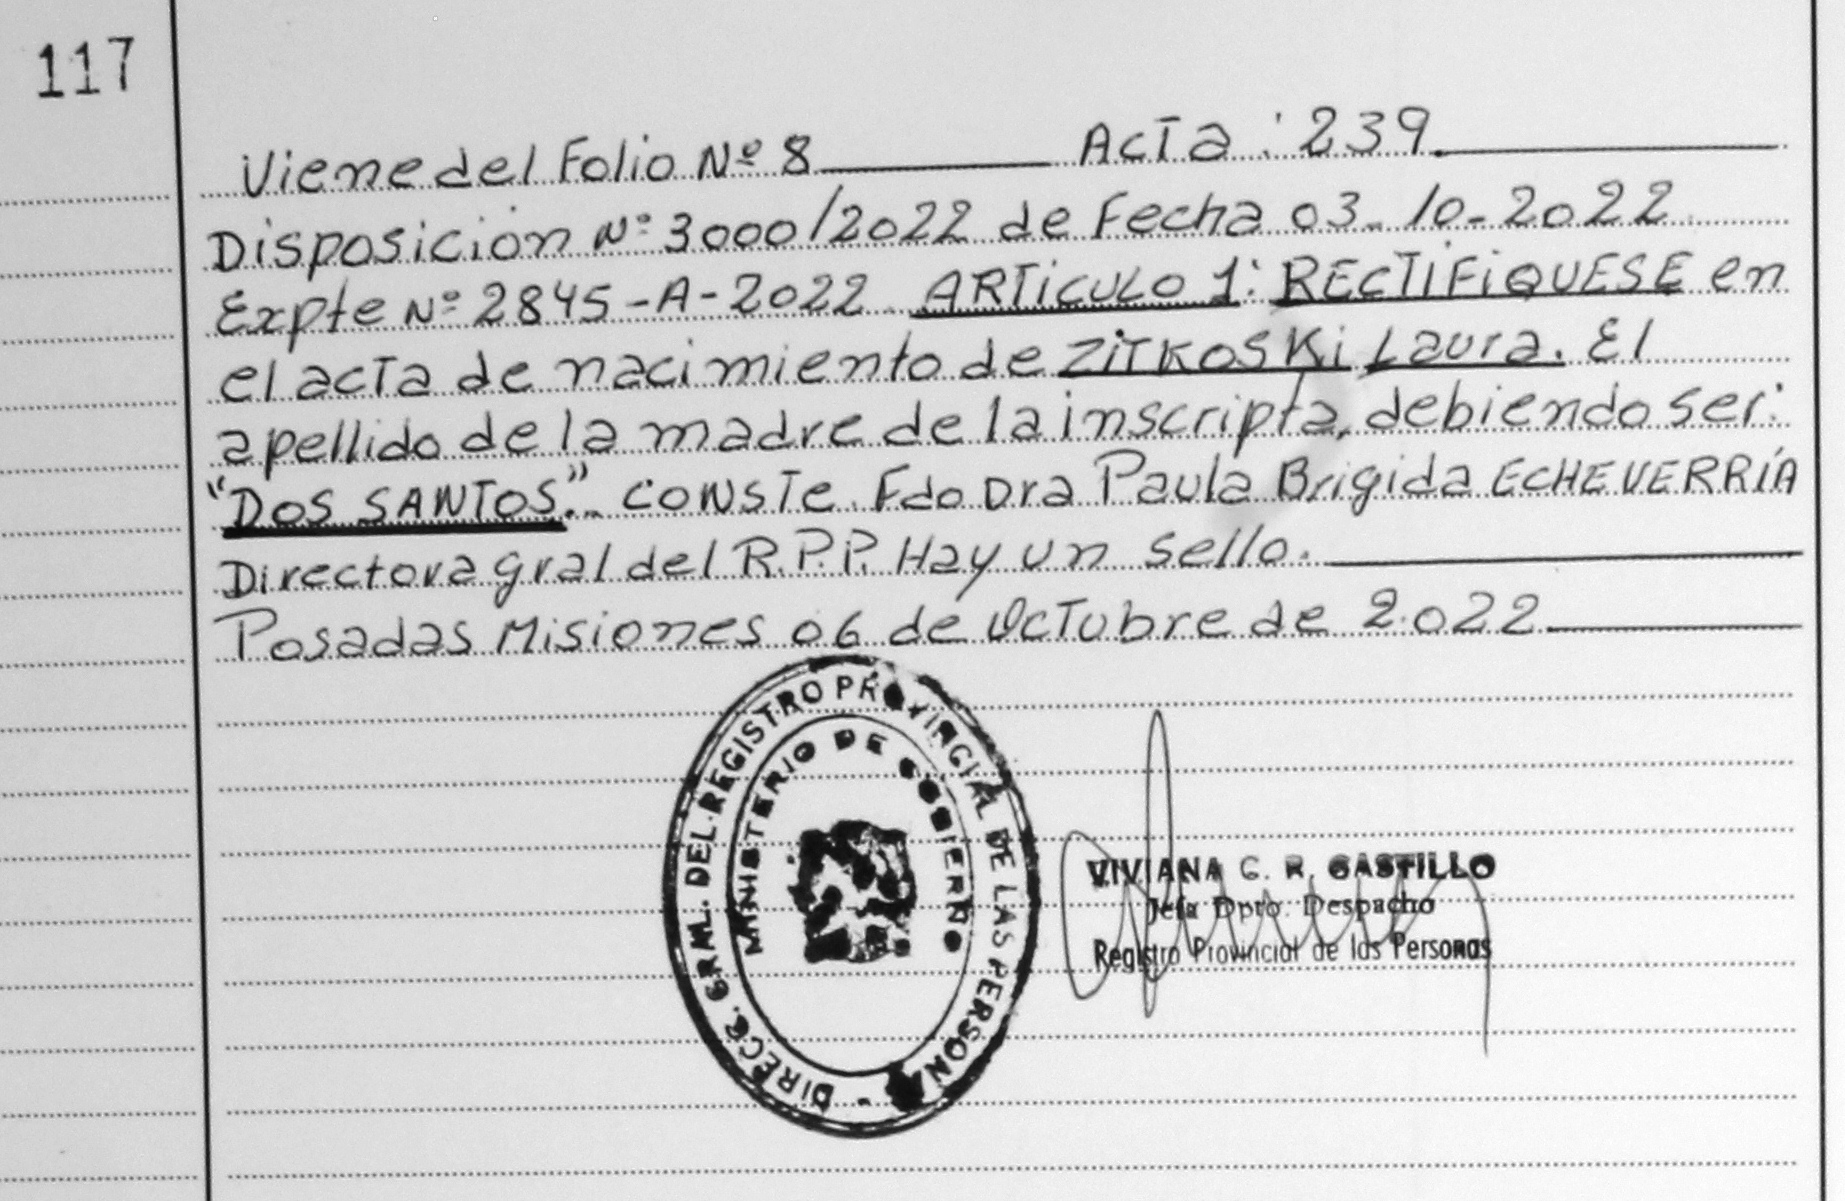 117
Viene del Folio Nº 8 Acta : 239.
Disposicion Nº 3000/2022 de Fecha 03-10-2022
Expte Nº 2845-A-2022 ARTiCULO 1: RECTIFiQUESE en
el acta de nacimiento de ZiTKOSKi Laura. El
apellido de la madre de la inscripta, debiendo ser:
"DOS SANTOS". CONSTE. Fdo Dra Paula Brigida ECHEVERRÍA
Directora gral del R.P.P. Hay un sello.
Posadas Misiones 06 de Octubre de 2022
DIRECC. GRAL. DEL REGISTRO PROVINCIAL DE LAS PERSONAS -
MINISTERIO DE GOBIERNO
VIVIANA G. R. CASTILLO
Jefa Dpto. Despacho
Registro Provincial de las Personas